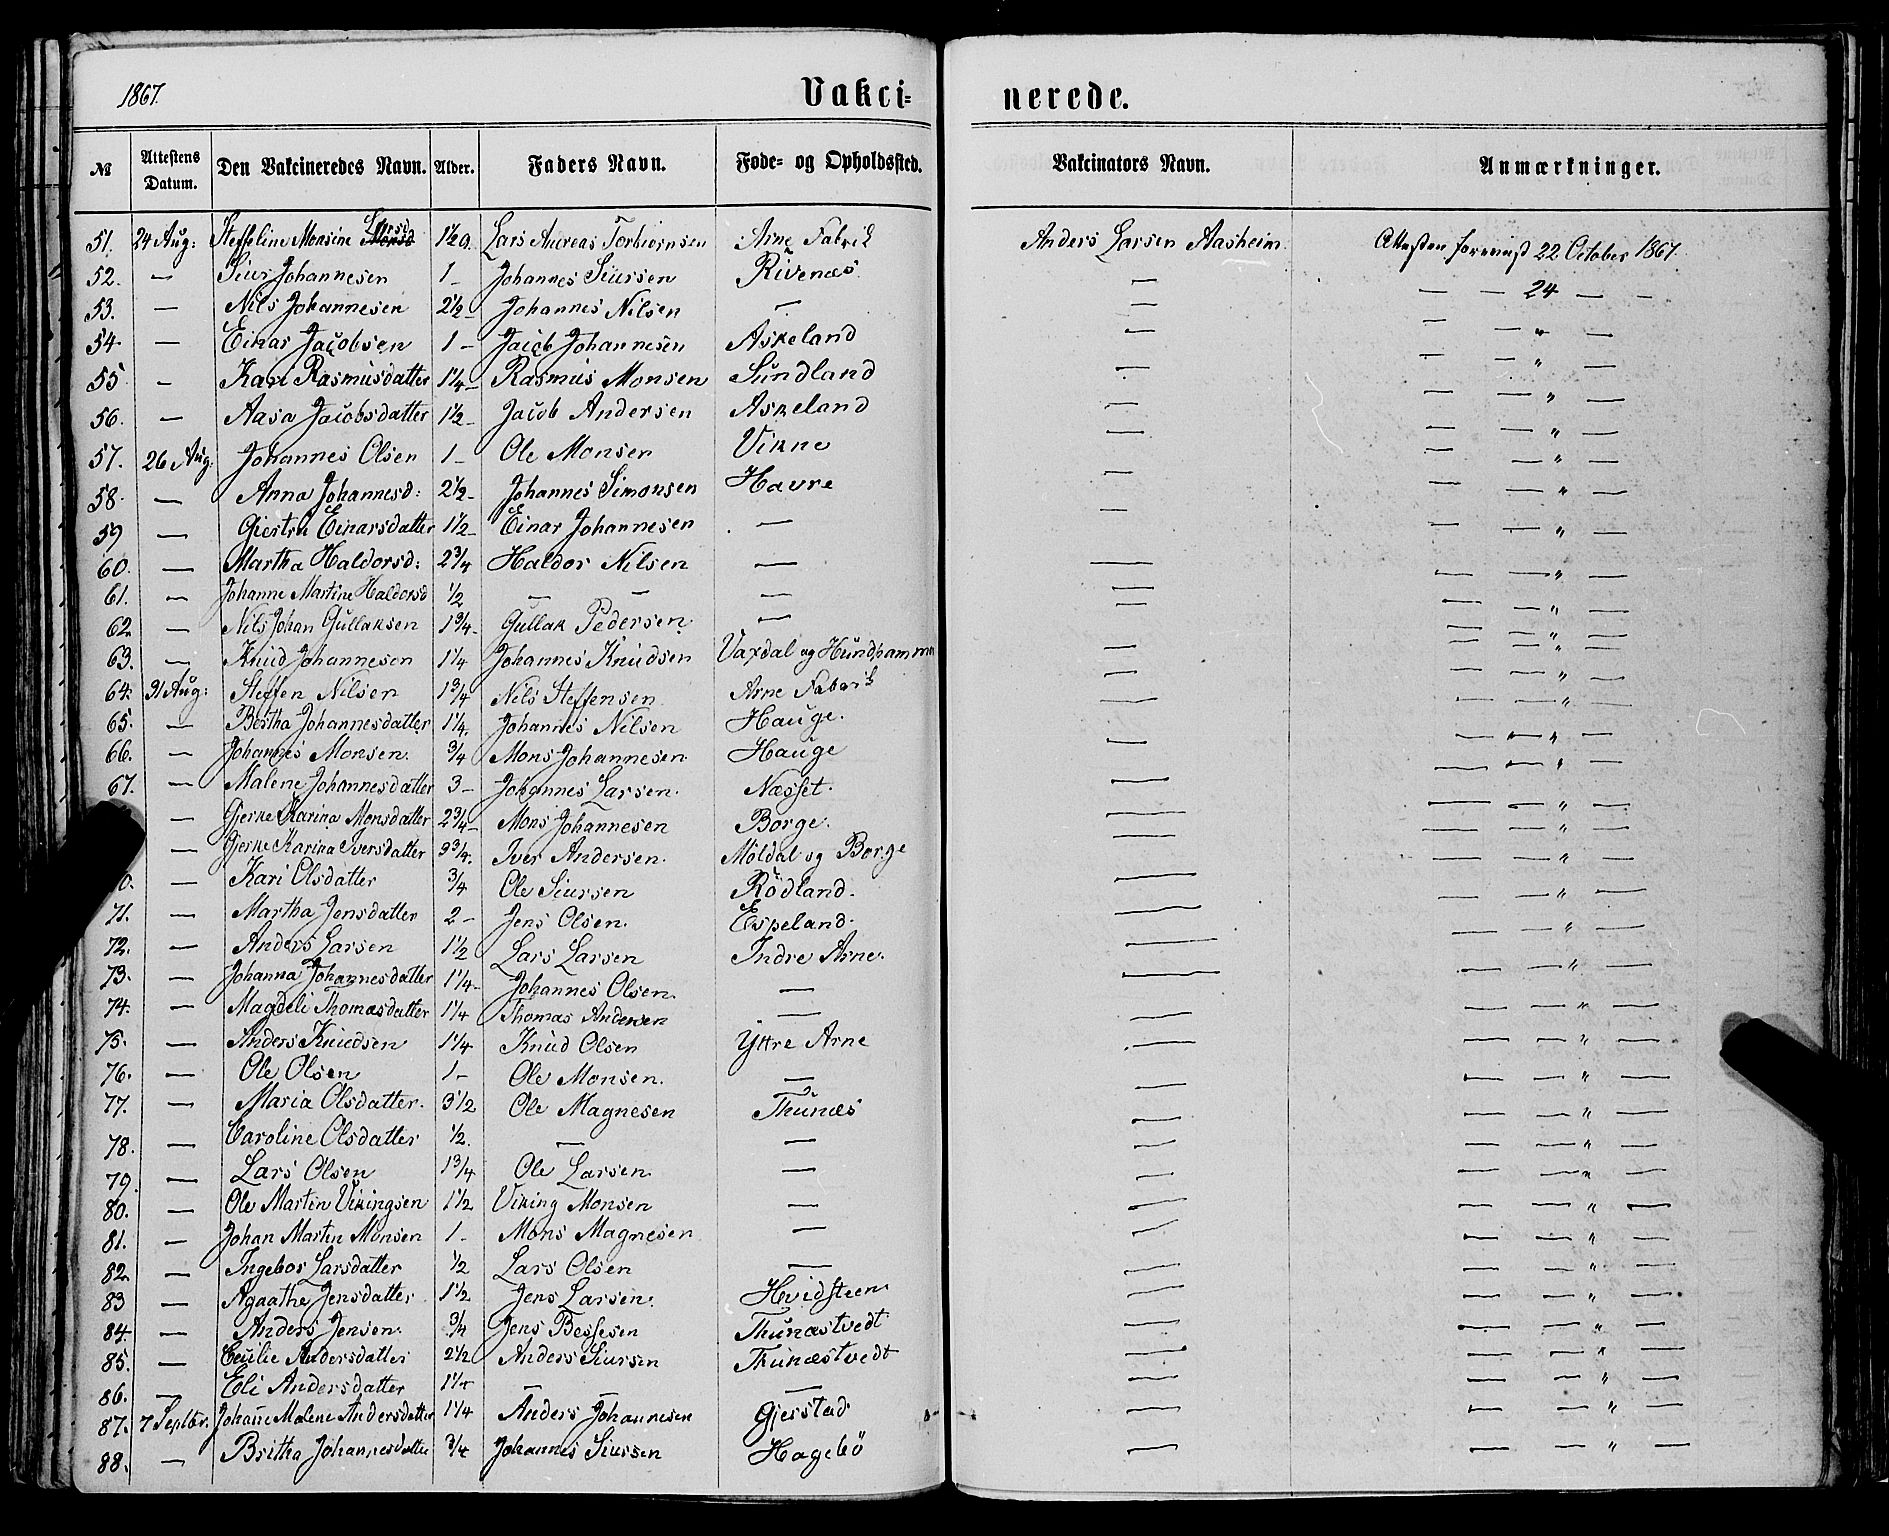 1867. Vakci= nerede.
№ Attestens Datum. Den Vakcineredes Navn. Alder. Faders Navn. Føde= og Opholdssted. Vakcinators Navn. Anmærkninger.
51. 24 Aug: Steffeline Monsine Monsd Larsd 1½ a. Lars Andreas Torbiørnsen Arne Fabrik Anders Larsen Aasheim Attesten forevist 22 October 1867.
52. — Siur Johannesen 1 - Johannes Siursen Rivenæs — — — 24 — —
53. — Nils Johannesen 2½ - Johannes Nilsen — — — — " —
54. — Einar Jacobsen 1 — Jacob Johannesen Askeland — — — " —
55. — Kari Rasmusdatter 1¼ - Rasmus Monsen Sundland — — — " —
56. — Aasa Jacobsdatter 1½ - Jacob Andersen Askeland — — — " —
57. 26 Aug: Johannes Olsen 1 - Ole Monsen Vikne — — — " —
58. — Anna Johannesd: 2½ - Johannes Simonsen Havre — — — " —
59 — Giertru Einarsdatter 1½ - Einar Johannesen — — — — " —
60. — Martha Haldorsd: 2¾ Haldor Nilsen — — — — " —
61. — Johanne Martine Haldorsd ½ — — — — — — " —
62. — Nils Johan Gullaksen 1¾ - Gullak Pedersen — — — — " —
63. — Knud Johannesen 1¼ Johannes Knudsen Vaxdal og Hundhammer — — — " —
64. 31 Aug: Steffen Nilsen 1¾ Nils Steffensen Arne Fabrik — — — " —
65. — Bertha Johannesdatter 1¼. Johannes Nilsen Hauge. — — — " —
66. — Johannes Monsen. ¾ Mons Johannesen Hauge — — — " —
67. — Malene Johannesdatter 3 - Johannes Larsen. Næsset. — — — " —
— Gjerke Karina Monsdatter 2¾ - Mons Johannesen Borge. — — — " —
— Gjerke Karina Iversdatter 3¾. Iver Andersen. Møldal og Borge — — — " —
0. — Kari Olsdatter ¾ Ole Siursen Rødland. — — — " —
71. — Martha Jensdatter 2 - Jens Olsen. Espeland. — — — " —
72. — Anders Larsen 1½ Lars Larsen Indre Arne. — — — " —
73. — Johanna Johannesdatter 1¼ - Johannes Olsen. — — — — " —
74. — Magdeli Thomasdatter 1¼ Thomas Andersen — — — — " —
75. — Anders Knudsen 1¼ Knud Olsen Yttre Arne — — — " —
76. — Ole Olsen 1 - Ole Monsen. — — — — " —
77. — Maria Olsdatter. 3½ Ole Magnesen Thunæs — — — " —
78. — Caroline Olsdatter ½. — — — — — " —
79. — Lars Olsen 1¾ Ole Larsen. — — — — " —
80. — Ole Martin Vikingsen 1½ Viking Monsen — — — — " —
81. — Johan Martin Monsen 1 - Mons Magnesen — — — — " —
82. — Ingebor Larsdatter ½ Lars Olsen — — — — " —
83 — Agaathe Jensdatter 1½ Jens Larsen. Hvidsteen — — — " —
84. — Anders Jensen. ¾ Jens Bessesen Thunæstvedt — — — " —
85. — Cecilie Andersdatter 2½ Anders Siursen Thunæstvedt — — — " —
86. — Eli Andersdatter 1¼ — — — — — — " —
87. 7 Septbr. Johanne Malene Andersdatter 1¼ Anders Johannesen Gjerstad — — — " —
88. — Britha Johannesdatter ¾ Johannes Siursen Hagebö — — — " —